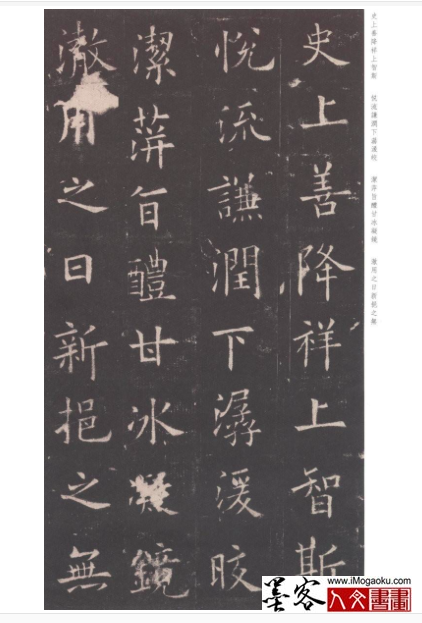 史上善降祥上智斯 悅流謙潤下潺湲皎 潔萍旨醴甘冰凝鏡 澈用之日新挹之無
史上善降祥上智斯
悅流謙潤下潺湲晈
潔蓱旨醴甘冰凝鏡
澈用之日新挹之無
墨客
www.iMogaoku.com
人文書畫